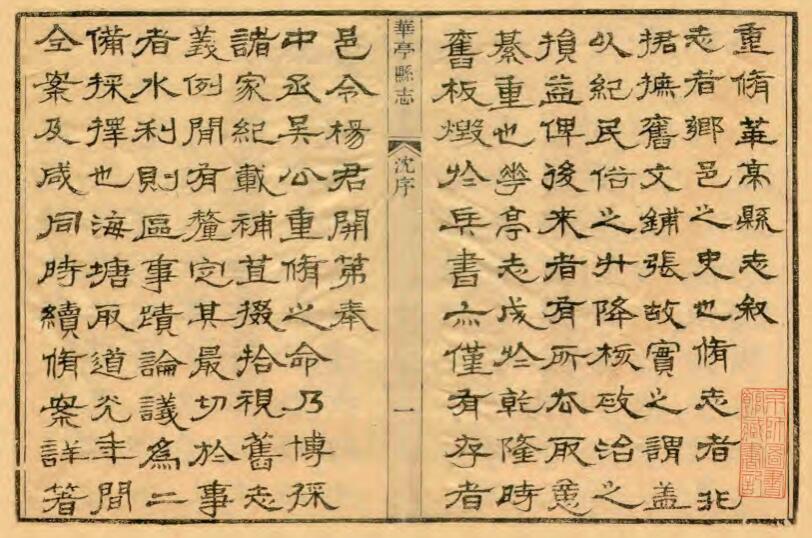 重脩華亭縣志叙
志者鄉邑之史也脩志者非
捃摭舊文鋪張故實之謂蓋
以紀民俗之升降核政治之
損益俾後来者有所厺取意
綦重也華亭志成於乾隆時
舊板燬於兵書亦僅有存者
華亭縣志
沈序
一
邑令楊君開第奉
中丞吳公重脩之命乃博採
諸家紀載補苴掇拾視舊志
義例閒有釐定其最切於事
者水利則區事蹟論議爲二
備採擇也海塘取道光年間
全案及咸同時續脩案詳著
京師圖書
館藏書記